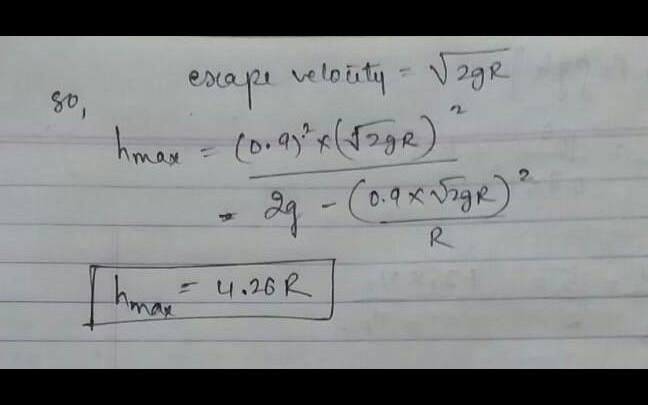 escape velocity = √2gR
so,
hmax = (0.9)² × (√2gR)²
2g - (0.9 × √2gR)²
R
hmax = 4.26 R